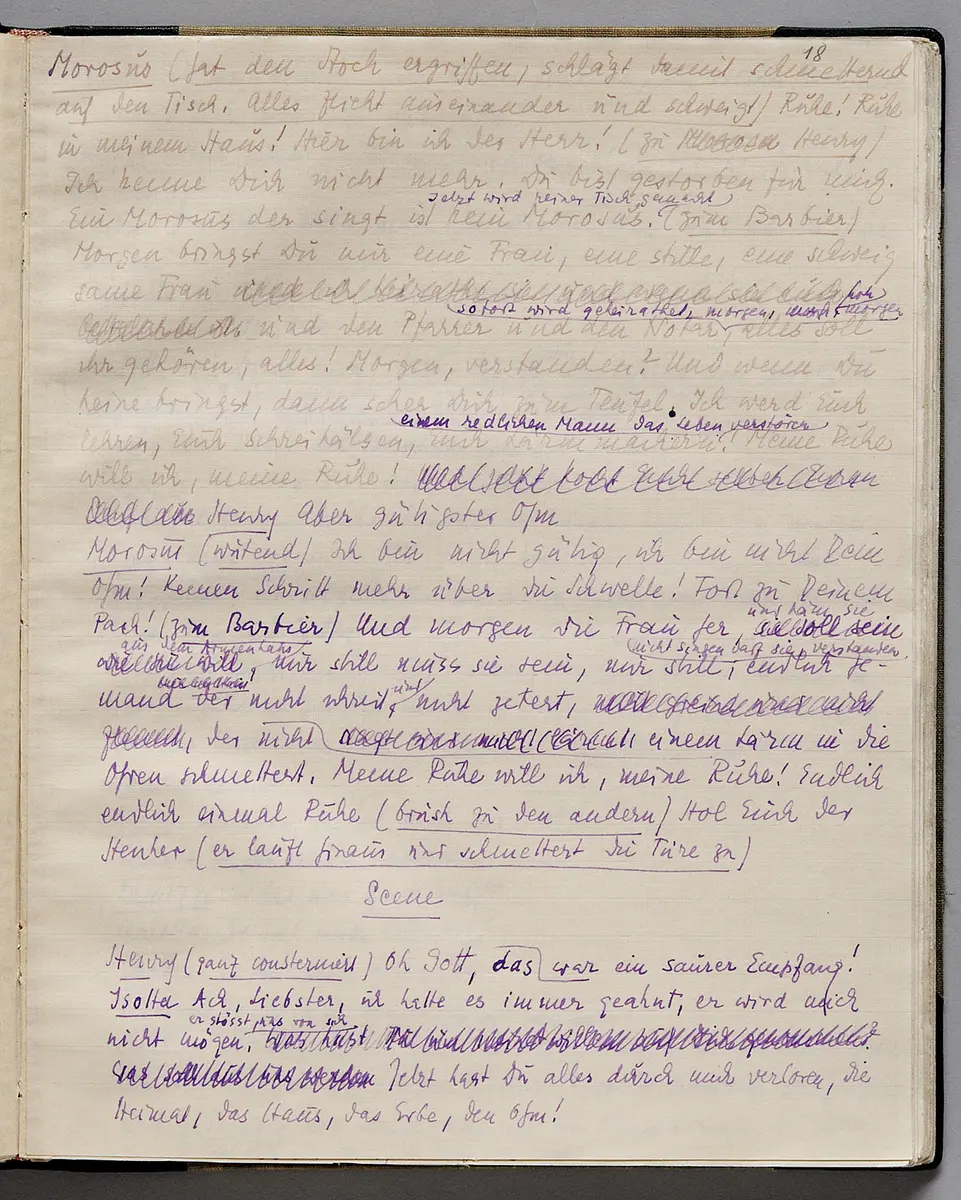 18
Morosus (hat den Stock ergriffen, schlägt damit schmetternd
auf den Tisch. Alles flieht auseinander und schweigt) Ruhe! Ruhe
in meinem Haus! Hier bin ich der Herr! (zu Henry)
Ich kenne Dich nicht mehr. Du bist gestorben für mich.
Jetzt wird reiner Tisch gemacht
Ein Morosus der singt ist kein Morosus. (zum Barbier)
Morgen bringst Du mir eine Frau, eine stille, eine schweig
same Frau
sofort wird geheirathet, morgen, noch morgen
und den Pfarrer und den Notar, alles soll
ihr gehören, alles! Morgen, verstanden? Und wenn Du
keine bringst, dann scher Dich zum Teufel. Ich werd Euch
einem redlichen Mann das Leben verstören
lehren, Euch Schreihälsen, Euch Lärmmachern! Meine Ruhe
will ich, meine Ruhe!
Henry Aber gütigster Ohm
Morosus (wütend) Ich bin nicht gütig, ich bin nicht Dein
Ohm! Keinen Schritt mehr über die Schwelle! Fort zu Deinem
und häm sie
Pack! (zum Barbier) Und morgen die Frau her, sie soll sein
aus dem Armenhaus nicht singen darf sie, verstanden
wie sie will, nur still muss sie sein, nur still, endlich je-
und
mand der nicht schreit, nicht zetert,
der nicht einem Lärm in die
Ohren schmettert. Meine Ruhe will ich, meine Ruhe! Endlich
endlich einmal Ruhe (brüsk zu den andern) Hol Euch der
Henker (er läuft hinaus und schmettert die Türe zu)
Scene
Henry (ganz consterniert) Oh Gott, das war ein saurer Empfang!
Isotta Ach, Liebster, ich hatte es immer geahnt, er wird mich
er stösst uns von sich
nicht mögen.
Jetzt hast Du alles durch mich verloren, die
Heimat, das Haus, das Erbe, den Ohm!